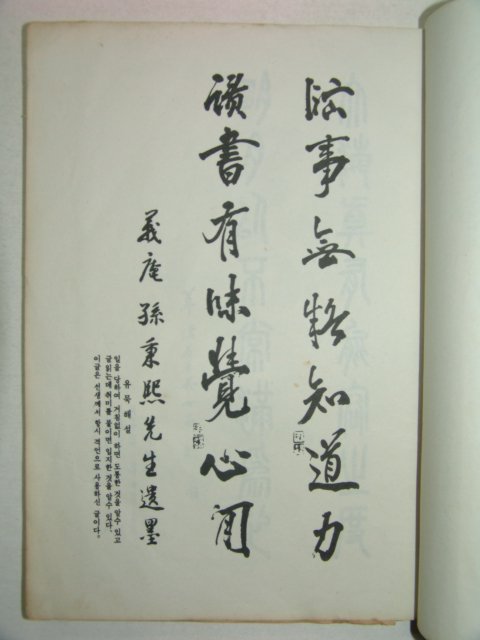 臨事無疑知道力
讀書有味覺心閒
義庵 孫秉熙先生遺墨
유묵해설
일을 당하여 거침없이 하면 도통한 것을 알수 있고
글읽는데 취미를 붙이면 입지한 것을 알수 있다.
이글은 선생께서 항시 격언으로 사용하신 글이다.